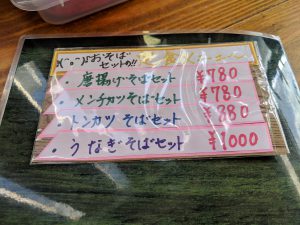 おそば
セットの!!
・唐揚げそばセット ¥780
・メンチカツそばセット ¥780
・トンカツそばセット ¥880
・うなぎそばセット ¥1000